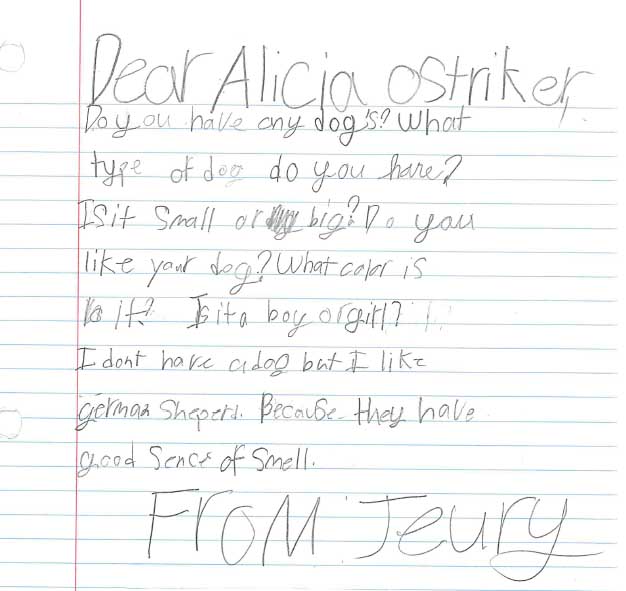 Dear Alicia Ostriker,
Do you have any dog's? What
type of dog do you have?
Is it Small or big? Do you
like your dog? What color is
it? Is it a boy or girl?
I dont have a dog but I like
german Sheperd. Because they have
good Sence of Smell.
FroM Jeury